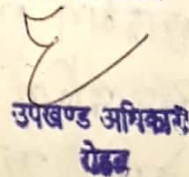 उपखण्ड अधिकारी
रोहट